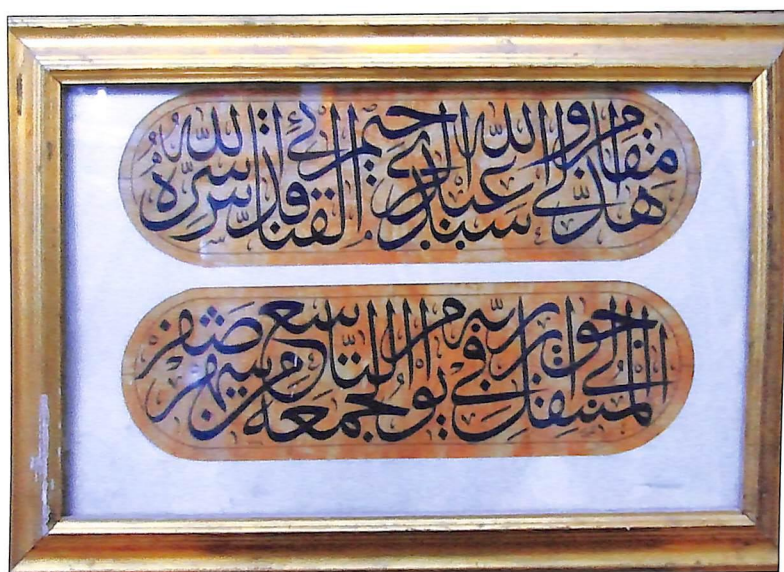 هذا مقام ولي الله سيدي عبد الرحيم القنائي قدس الله سره
المنتقل الى جوار ربه في يوم الجمعة التاسع من شهر صفر